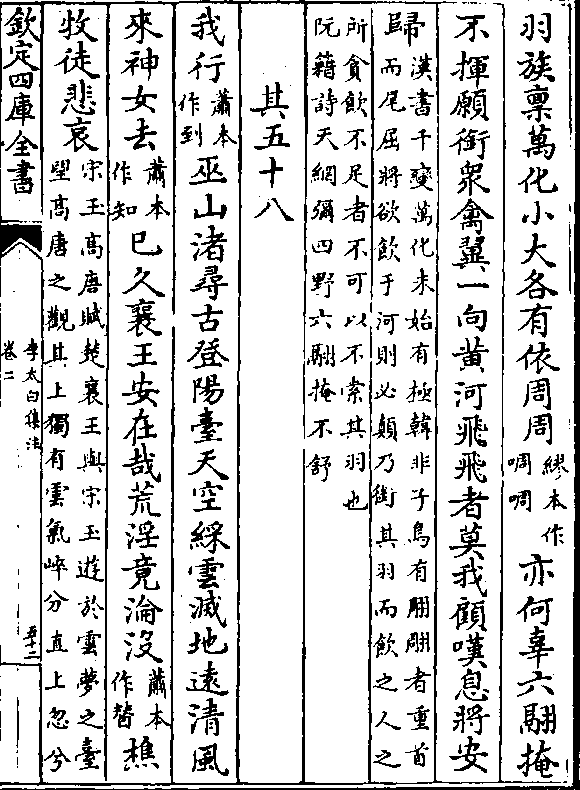 羽族禀萬化小大各有依周周繆本作啁啁亦何辜六翮掩
不揮願銜衆禽翼一向黄河飛飛者莫我顧嘆息將安
歸漢書千變萬化未始有極韓非子鳥有翢翢者重首
而尾屈將欲飲于河則必顛乃銜其羽而飲之人之
所貪飲不足者不可以不索其羽也
阮籍詩天網彌四野六翮掩不舒
其五十八
我行蕭本作到巫山渚尋古登陽臺天空綵雲滅地遠清風
來神女去蕭本作知已久襄王安在哉荒淫竟淪没蕭本作替樵
牧徒悲哀宋玉高唐賦楚襄王與宋玉遊於雲夢之臺
望高唐之觀其上獨有雲氣崪兮直上忽兮
欽定四庫全書
李太白集注
卷二
五十二